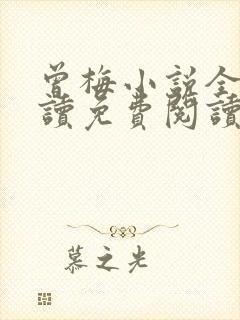 曾梅小說全
讀免費閱讀
慕之光